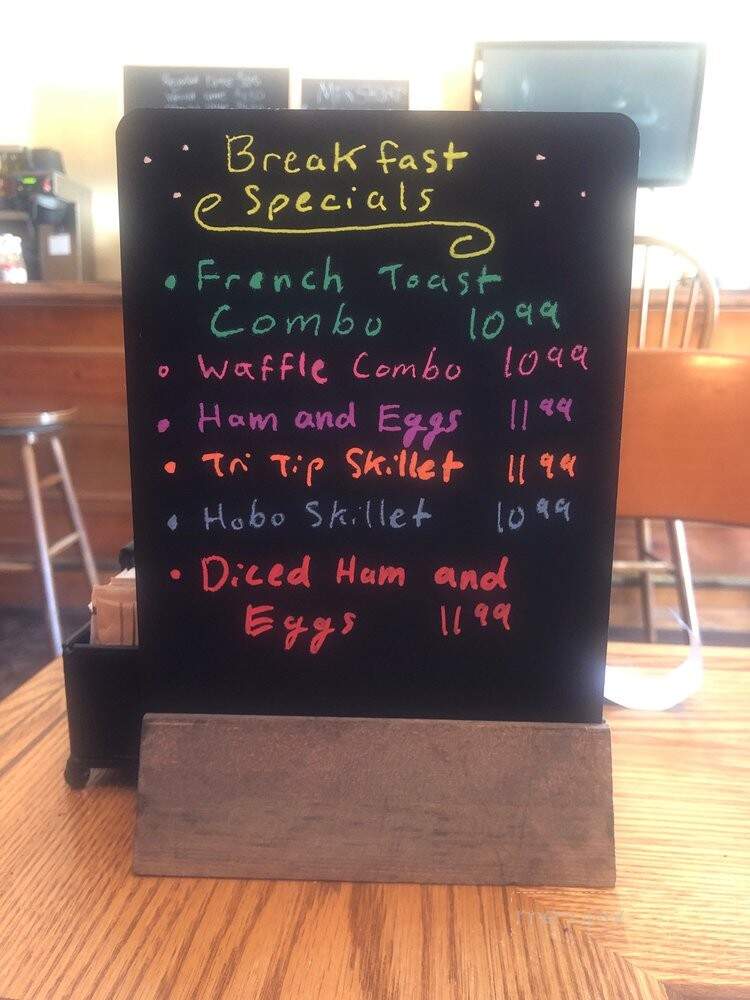 Breakfast
Specials
• French Toast
Combo 10 99
• Waffle Combo 10 99
• Ham and Eggs 11 99
• Tri Tip Skillet 11 99
• Hobo Skillet 10 99
• Diced Ham and
Eggs 11 99